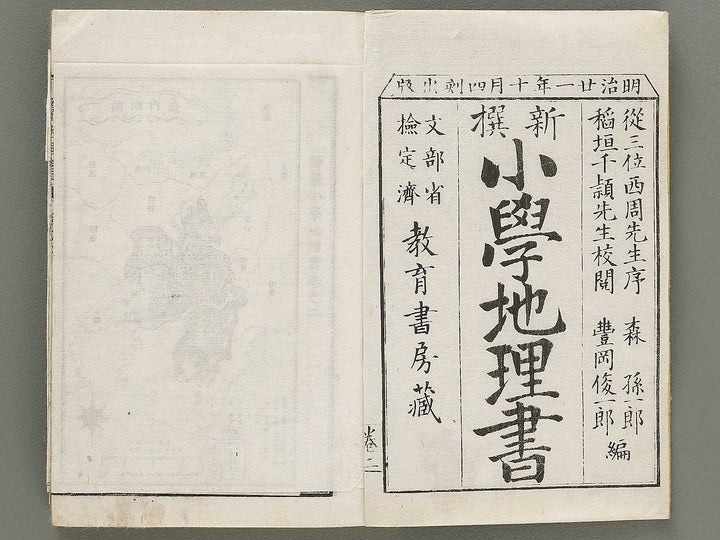 明治廿一年十月四刻出版
從三位西周先生序 森 孫一郎
稻垣千穎先生校閲 豐岡俊一郎 編
新撰
小學地理書
文部省
檢定濟
教育書房藏
卷二